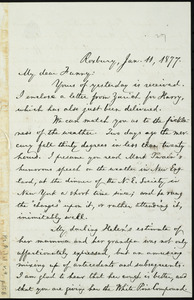 Roxbury, Jan. 11, 1877.
My dear Fanny:
Yours of yesterday is received.
I enclose a letter from Zuriah for Harry,
which has also just been delivered.
We can match you as to the fickle-
ness of the weather. Two days ago the mer-
cury fell thirty degrees in less than twenty
hours. I presume you read Mark Twain's
humorous speech on the weather in New Eng-
land, at the dinner of the N. E. Society in
New York a short time since, and he rang
the changes upon it, or rather, attending it,
inimitably well.
My darling Helen's estimate of
her mamma and her grandpa was not only
affectionately expressed, but an amusing
mixing up of antecedents and subsequents.
I am glad to hear that her cough is better, and
that you are giving her the White Pine Compound.